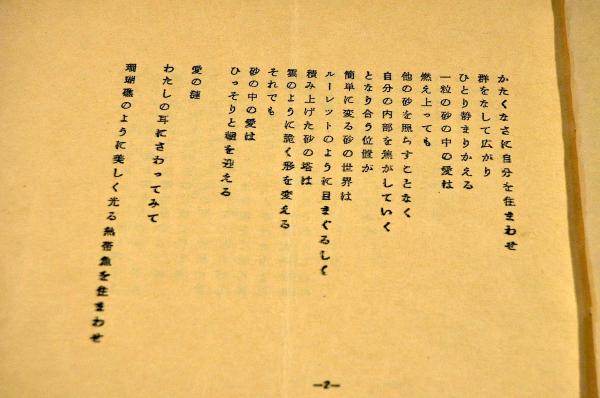 かたくなさに自分を住まわせ
群をなして広がり
ひとり静まりかえる
一粒の砂の中の愛は
燃え上っても
他の砂を照らすことなく
自分の内部を焦がしていく
となり合う位置が
簡単に変る砂の世界は
ルーレットのように目まぐるしく
積み上げた砂の塔は
雲のように脆く形を変える
それでも
砂の中の愛は
ひっそりと朝を迎える
愛の謎
わたしの耳にさわってみて
珊瑚礁のように美しく光る熱帯魚を住まわせ
—2—